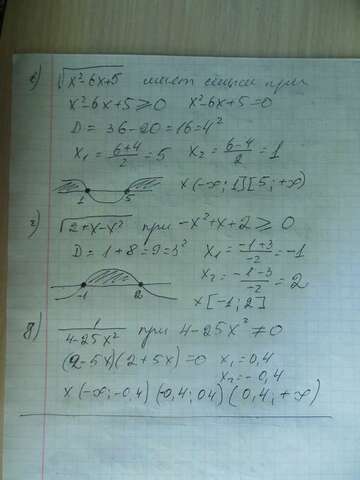 в) √x²-6x+5 имеет смысл при
x²-6x+5≥0 x²-6x+5=0
D=36-20=16=4²
x₁=(6+4)/2=5 x₂=(6-4)/2=1
1 5 x(-∞;1][5;+∞)
г) √2+x-x² при -x²+x+2≥0
D=1+8=9=3² x₁=(-1+3)/-2=-1
x₂=(-1-3)/-2=2
-1 2 x[-1;2]
д) 1/(4-25x²) при 4-25x²≠0
(2-5x)(2+5x)=0 x₁=0,4
x₂=-0,4
x(-∞;-0,4)(-0,4;0,4)(0,4;+∞)